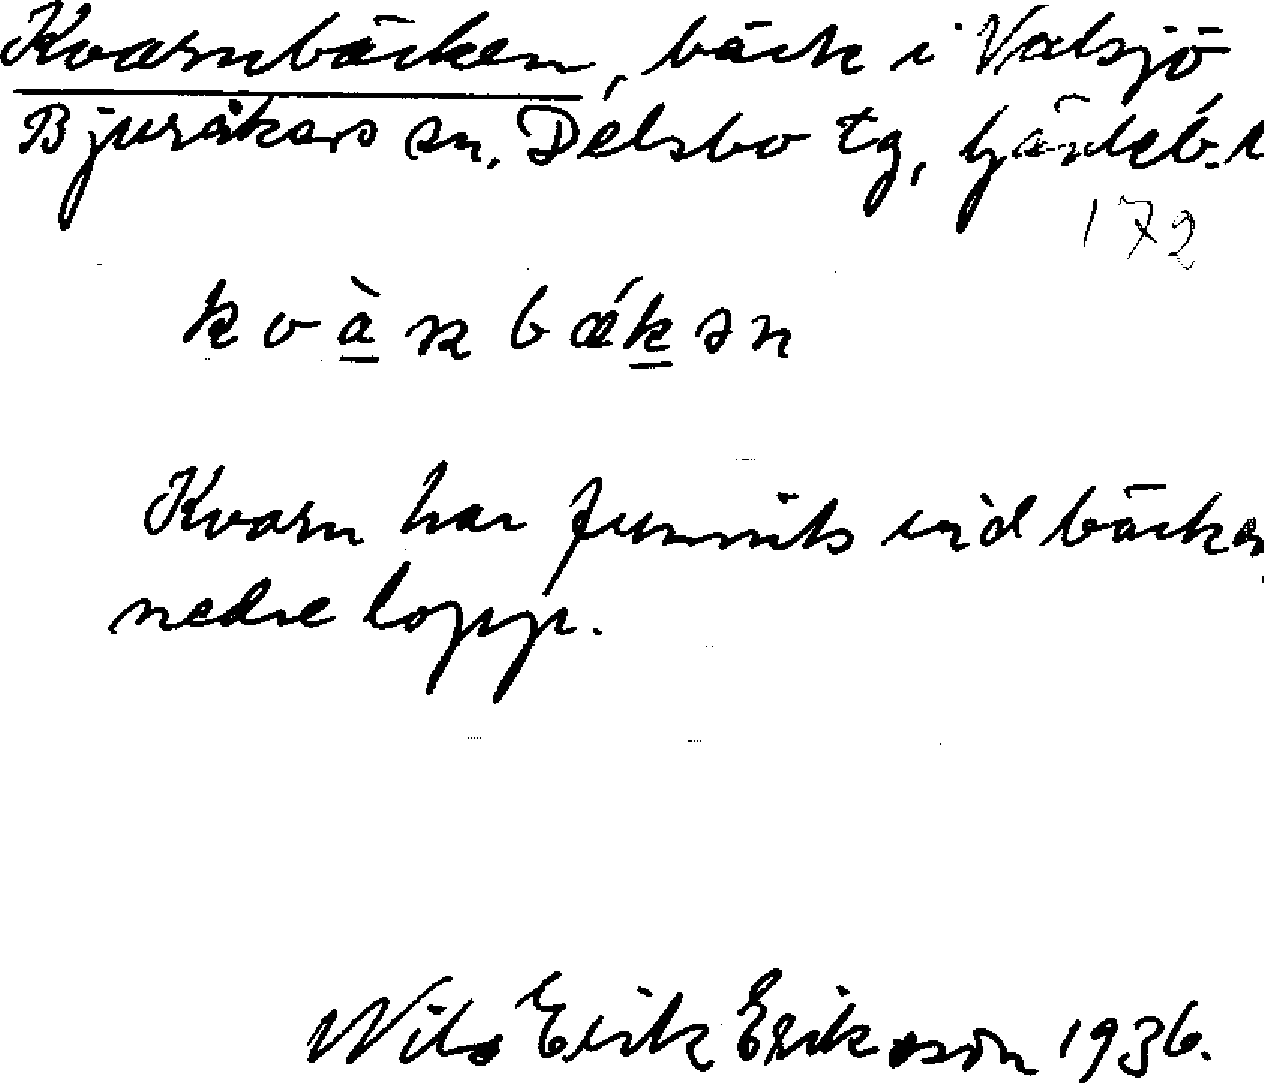 Kvarnbäcken, bäck i Valsjö
Bjuråkers sn. Delsbo tg, Gävleb. l
172
kvàrbǽkən
Kvarn har funnits vid bäcken
nedre lopp.
Nils Erik Eriksson 1936.